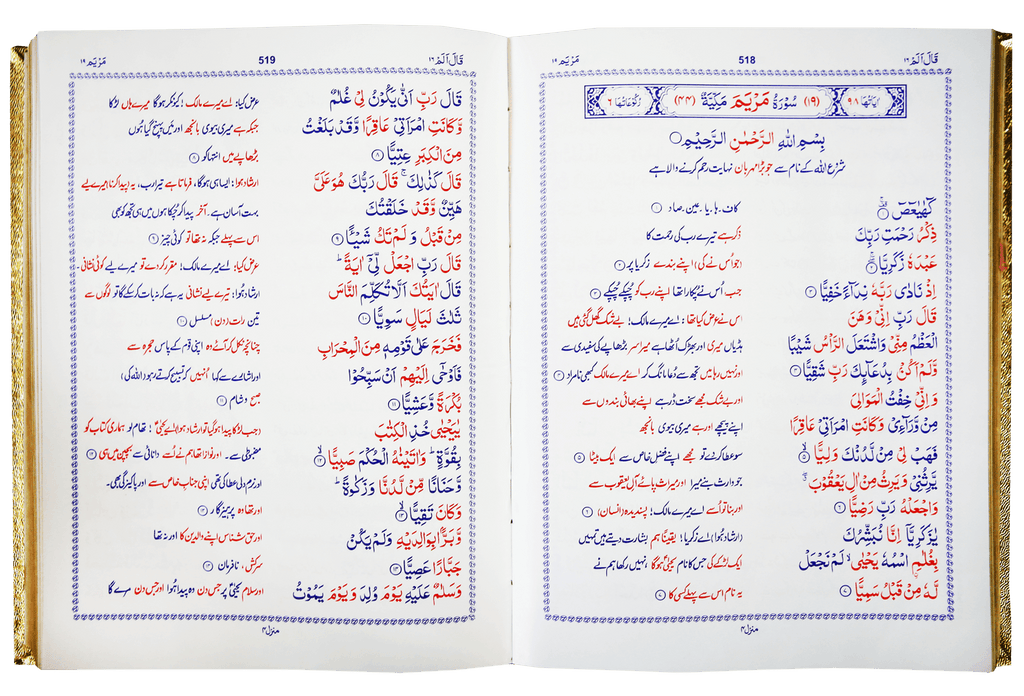 قَالَ اَلَمْ ١٦
518
مَرْيَم ١٩
اٰيَاتُهَا ٩٨
(١٩) سُوْرَةُ مَرْيَمَ مَكِّيَّةٌ (٤٤)
رُكُوْعَاتُهَا ٦
بِسْمِ اللّٰهِ الرَّحْمٰنِ الرَّحِيْمِ
شرع اللہ کے نام سے جو بڑا مہربان نہایت رحم کرنے والا ہے
كٓهٰيٰعٓصٓ ١ کاف۔ ہا۔ یا۔ عین۔ صاد ١
ذِكْرُ رَحْمَتِ رَبِّكَ ذکر ہے تیرے رب کی رحمت کا
عَبْدَهٗ زَكَرِيَّا ٢ (جو اُس نے کی) اپنے بندے زکریا پر ٢
اِذْ نَادٰى رَبَّهٗ نِدَآءً خَفِيًّا ٣ جب اُس نے پکارا تھا اپنے رب کو چُپکے چُپکے ٣
قَالَ رَبِّ اِنِّيْ وَهَنَ اس نے عرض کیا تھا: اے میرے مالک! بے شک گھل گئی ہیں
الْعَظْمُ مِنِّيْ وَاشْتَعَلَ الرَّاْسُ شَيْبًا ہڈیاں میری اور بھڑک اُٹھا ہے میرا سر بڑھاپے کی سفیدی سے
وَّلَمْ اَكُنْۢ بِدُعَآئِكَ رَبِّ شَقِيًّا ٤ اور نہیں رہا میں تجھ سے دُعا مانگ کر اے میرے مالک کبھی نامراد ٤
وَاِنِّيْ خِفْتُ الْمَوَالِيَ اور بے شک مجھے سخت ڈر ہے اپنے بھائی بندوں سے
مِنْ وَّرَآءِيْ وَكَانَتِ امْرَاَتِيْ عَاقِرًا اپنے پیچھے اور ہے میری بیوی بانجھ
فَهَبْ لِيْ مِنْ لَّدُنْكَ وَلِيًّا ٥ سو عطا کر دے تو مجھے اپنے فضلِ خاص سے ایک بیٹا ٥
يَّرِثُنِيْ وَيَرِثُ مِنْ اٰلِ يَعْقُوْبَ جو وارث بنے میرا اور میراث پائے آلِ یعقوب سے
وَاجْعَلْهُ رَبِّ رَضِيًّا ٦ اور بنا تو اُسے اے میرے مالک! پسندیدہ (انسان) ٦
يٰزَكَرِيَّآ اِنَّا نُبَشِّرُكَ (ارشاد ہوا) اے زکریا! یقیناً ہم بشارت دیتے ہیں تمہیں
بِغُلٰمِ اۨسْمُهٗ يَحْيٰى لَمْ نَجْعَلْ ایک لڑکے کی جس کا نام یحییٰ ہوگا، نہیں رکھا ہم نے
لَّهٗ مِنْ قَبْلُ سَمِيًّا ٧ یہ نام اس سے پہلے کسی کا ٧
منزل ٤
قَالَ اَلَمْ ١٦
519
مَرْيَم ١٩
قَالَ رَبِّ اَنّٰى يَكُوْنُ لِيْ غُلٰمٌ عرض کیا: اے میرے مالک! کیونکر ہوگا میرے ہاں لڑکا
وَّكَانَتِ امْرَاَتِيْ عَاقِرًا وَّقَدْ بَلَغْتُ جبکہ ہے میری بیوی بانجھ اور میں پہنچ گیا ہوں
مِنَ الْكِبَرِ عِتِيًّا ٨ بڑھاپے میں انتہا کو ٨
قَالَ كَذٰلِكَ قَالَ رَبُّكَ هُوَ عَلَيَّ ارشاد ہوا: ایسا ہی ہوگا، فرماتا ہے تیرا رب، یہ (پیدا کرنا) میرے لیے
هَيِّنٌ وَّقَدْ خَلَقْتُكَ بہت آسان ہے۔ آخر پیدا کر چُکا ہوں میں ہی تجھ کو بھی
مِنْ قَبْلُ وَلَمْ تَكُ شَيْـًٔا ٩ اس سے پہلے جبکہ نہ تھا تو کوئی چیز ٩
قَالَ رَبِّ اجْعَلْ لِّيْٓ اٰيَةً عرض کیا: اے میرے مالک! مقرر کر دے تو میرے لیے کوئی نشانی۔
قَالَ اٰيَتُكَ اَلَّا تُكَلِّمَ النَّاسَ ارشاد ہوا: تیرے لیے نشانی یہ ہے کہ نہ بات کر سکے گا تو لوگوں سے
ثَلٰثَ لَيَالٍ سَوِيًّا ١٠ تین رات (دن) مسلسل ١٠
فَخَرَجَ عَلٰى قَوْمِهٖ مِنَ الْمِحْرَابِ چنانچہ نکل کر آئے وہ اپنی قوم کے پاس حجرہ سے
فَاَوْحٰٓى اِلَيْهِمْ اَنْ سَبِّحُوْا اور اشارے سے کہا اُنہیں کہ تسبیح کرتے رہو (اللہ کی)
بُكْرَةً وَّعَشِيًّا ١١ صبح و شام ١١
يٰيَحْيٰى خُذِ الْكِتٰبَ (جب لڑکا پیدا ہو گیا تو ارشاد ہوا) اے یحییٰ! تھام لو ہماری کتاب کو
بِقُوَّةٍ وَاٰتَيْنٰهُ الْحُكْمَ صَبِيًّا ١٢ مضبوطی سے۔ اور نوازا تھا ہم نے اُسے دانائی سے بچپن میں ہی ١٢
وَّحَنَانًا مِّنْ لَّدُنَّا وَزَكٰوةً اور نرم دلی عطا کی تھی اپنی جنابِ خاص سے اور پاکیزگی بھی۔
وَكَانَ تَقِيًّا ١٣ اور تھا وہ پرہیزگار ١٣
وَّبَرًّۢا بِوَالِدَيْهِ وَلَمْ يَكُنْ اور حق شناس اپنے والدین کا اور نہ تھا
جَبَّارًا عَصِيًّا ١٤ سرکش، نافرمان ١٤
وَسَلٰمٌ عَلَيْهِ يَوْمَ وُلِدَ وَيَوْمَ يَمُوْتُ اور سلام یحییٰ پر جس دن وہ پیدا ہوا اور جس دن مرے گا
منزل ٤